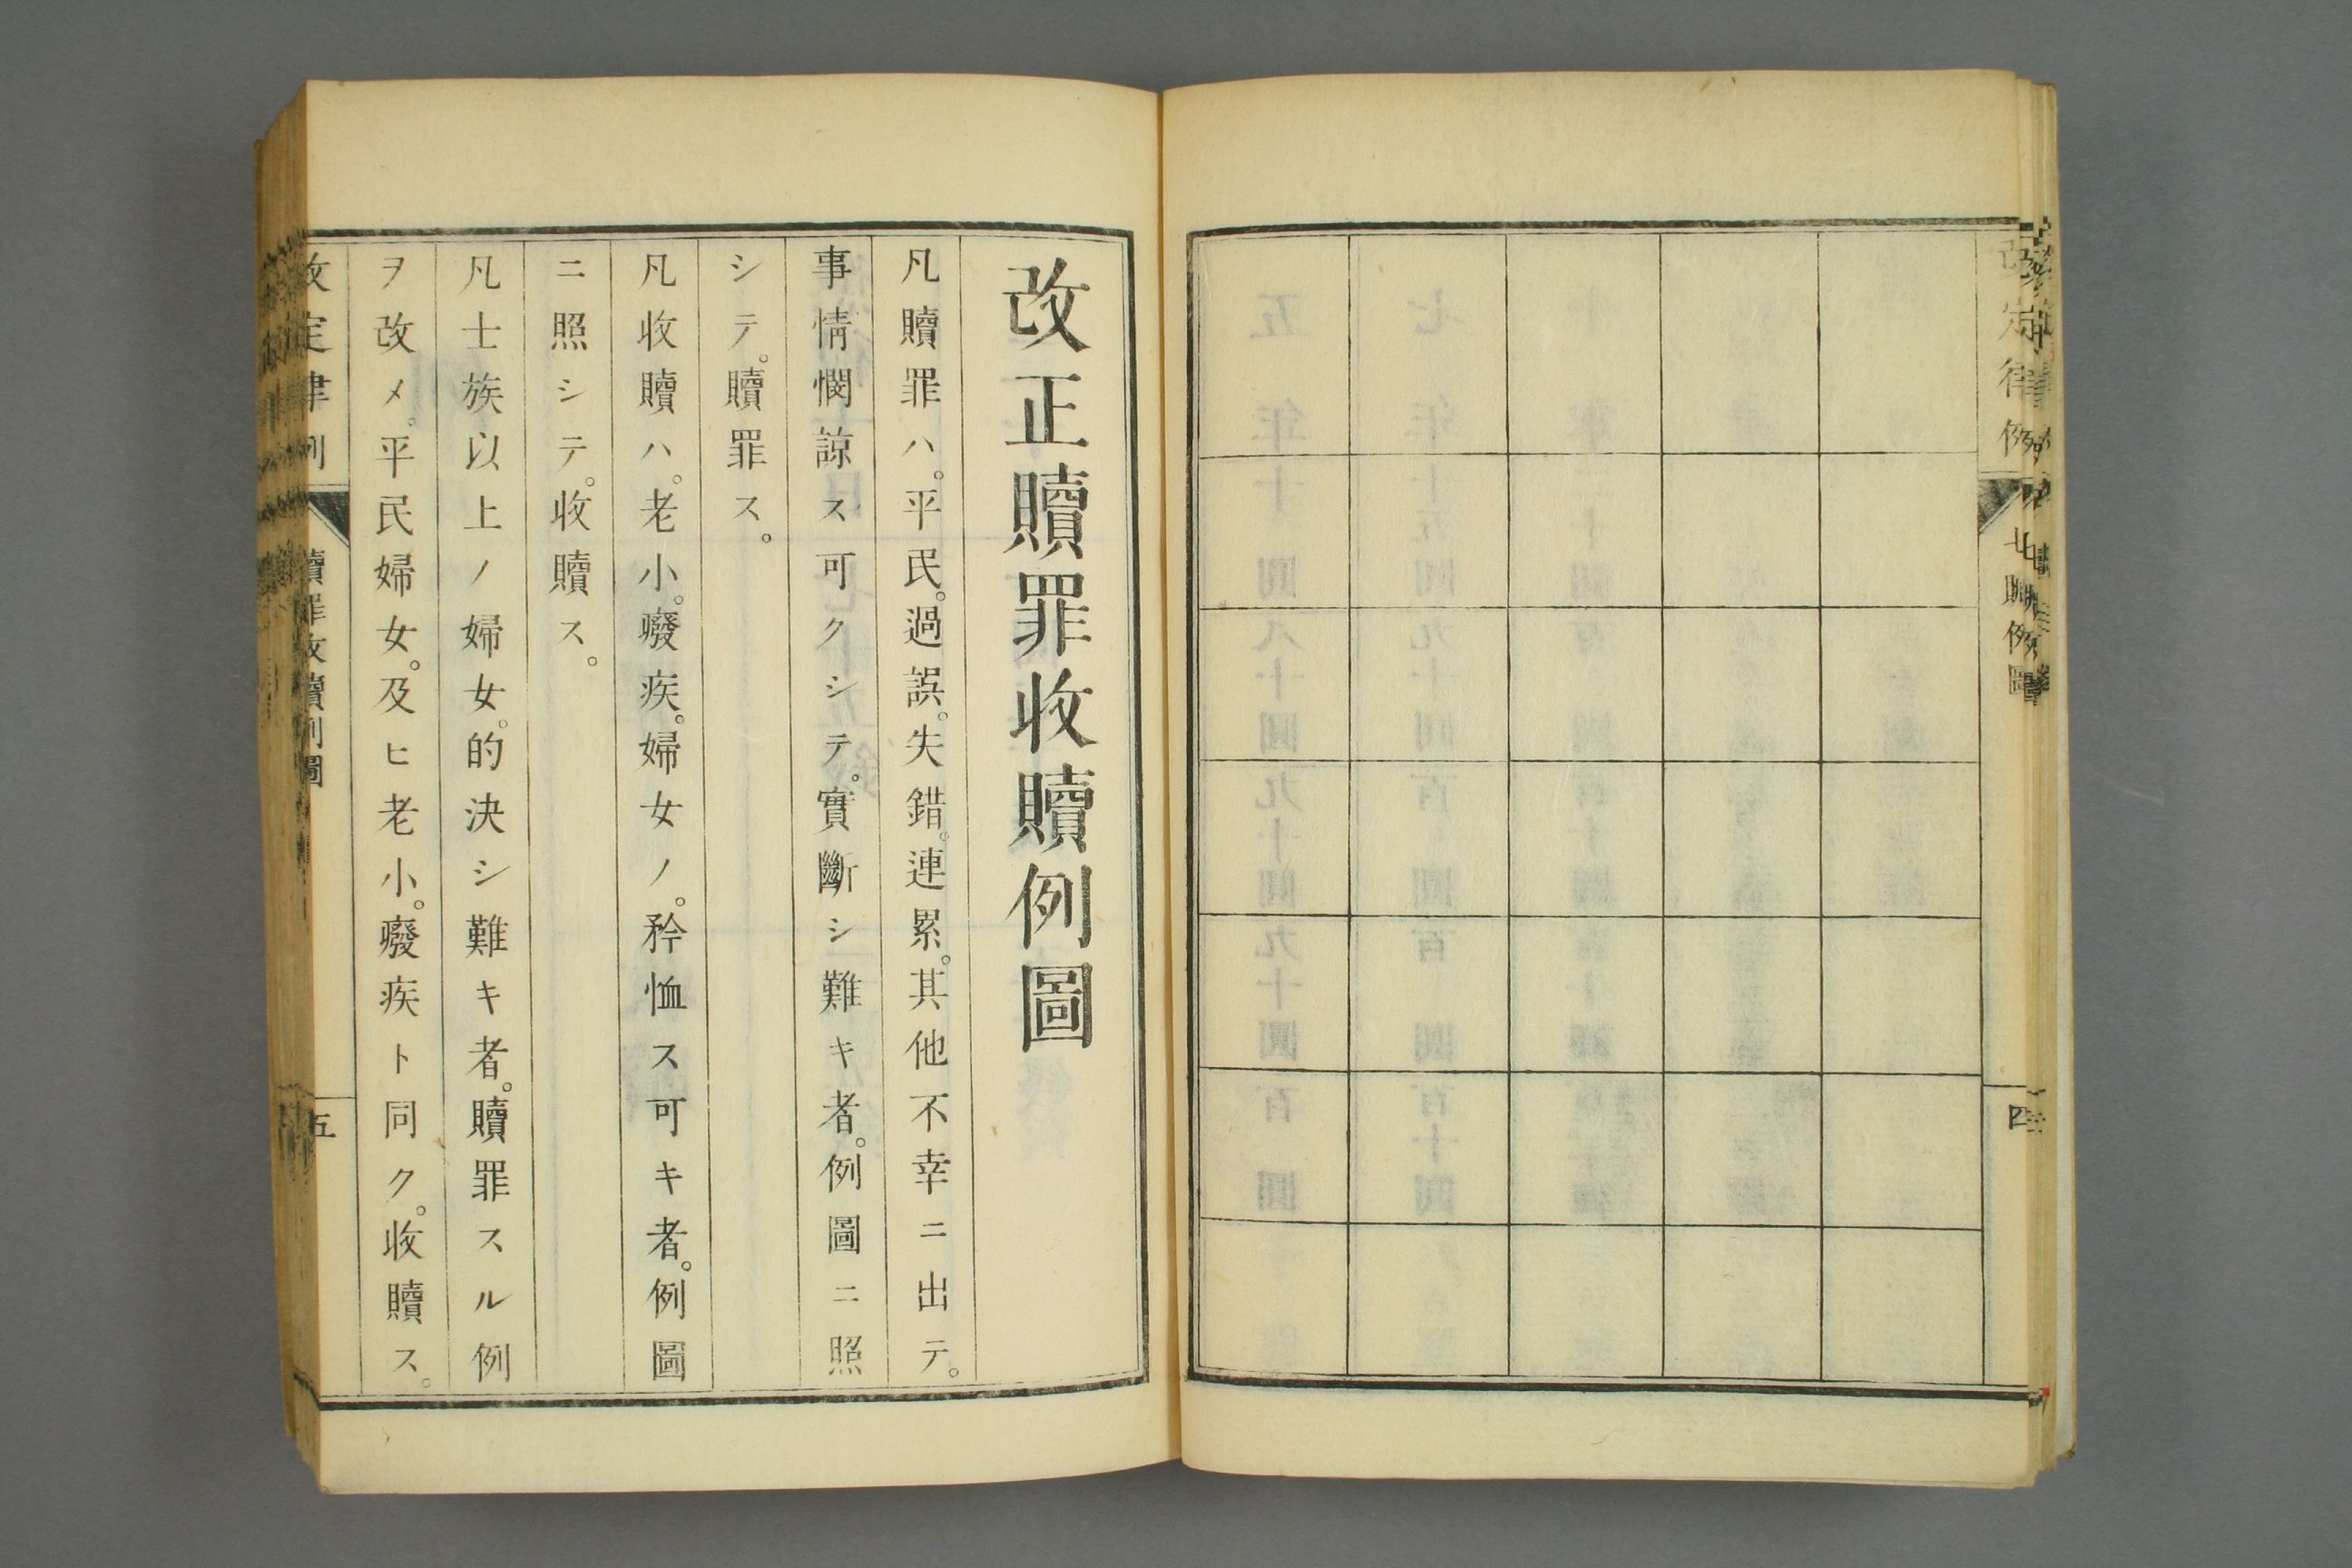 改正贖罪收贖例圖
凡贖罪ハ。平民。過誤。失錯。連累。其他不幸ニ出テ。
事情憫諒ス可クシテ。實斷シ難キ者。例圖ニ照
シテ。贖罪ス。
凡收贖ハ。老小。癈疾。婦女ノ。矜恤ス可キ者。例圖
ニ照シテ。收贖ス。
凡士族以上ノ婦女。的決シ難キ者。贖罪スル例
ヲ改メ。平民婦女。及ヒ老小。癈疾ト同ク。收贖ス。
改定律例
贖罪收贖例圖
五